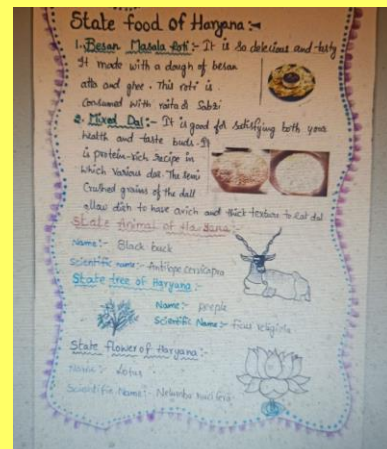 State food of Haryana :-
1. Besan Masala Roti :- It is so delecious and tasty
It made with a dough of besan
atta and ghee. This roti is
consumed with raita & Sabzi
2. Mixed Dal :- It is good for satisfying both your
health and taste buds. It
is protein-rich recipe in
which various dal. The semi
Crushed grains of the dall
allow dish to have a rich and thick texture to eat dal
State Animal of Haryana :-
Name :- Black buck
Scientific name :- Antilope cervicapra
State tree of Haryana :-
Name :- peeple
Scientific Name :- ficus religiosa
State flower of Haryana :-
Name :- Lotus
Scientific Name :- Nelumbo nucifera